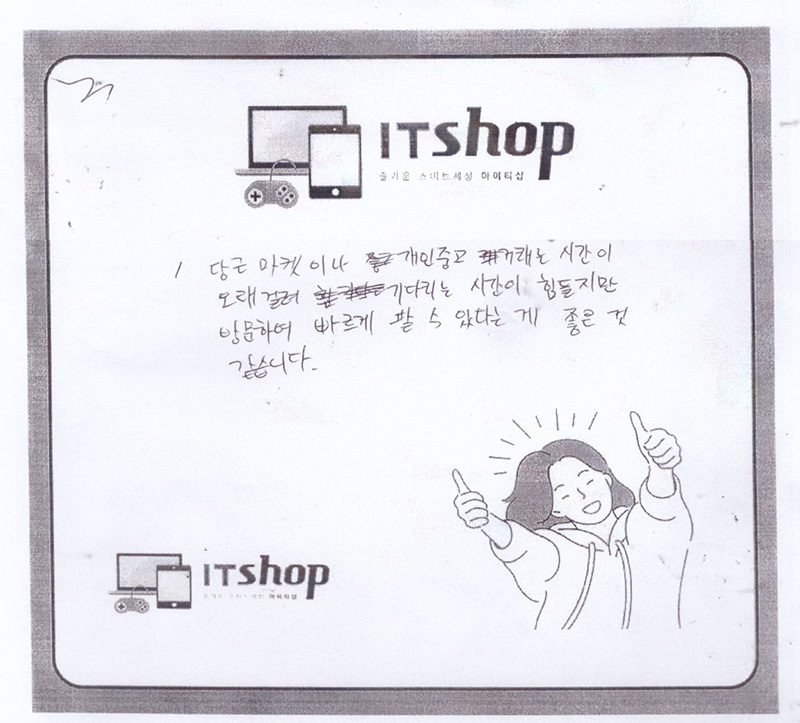 ITshop
즐거운 스마트세상 아이티샵
/ 당근 마켓이나 개인중고 거래는 시간이
오래걸려 기다리는 시간이 힘들지만
방문하여 바르게 팔 수 있다는 게 좋은 것
같습니다.
ITshop
아이티샵